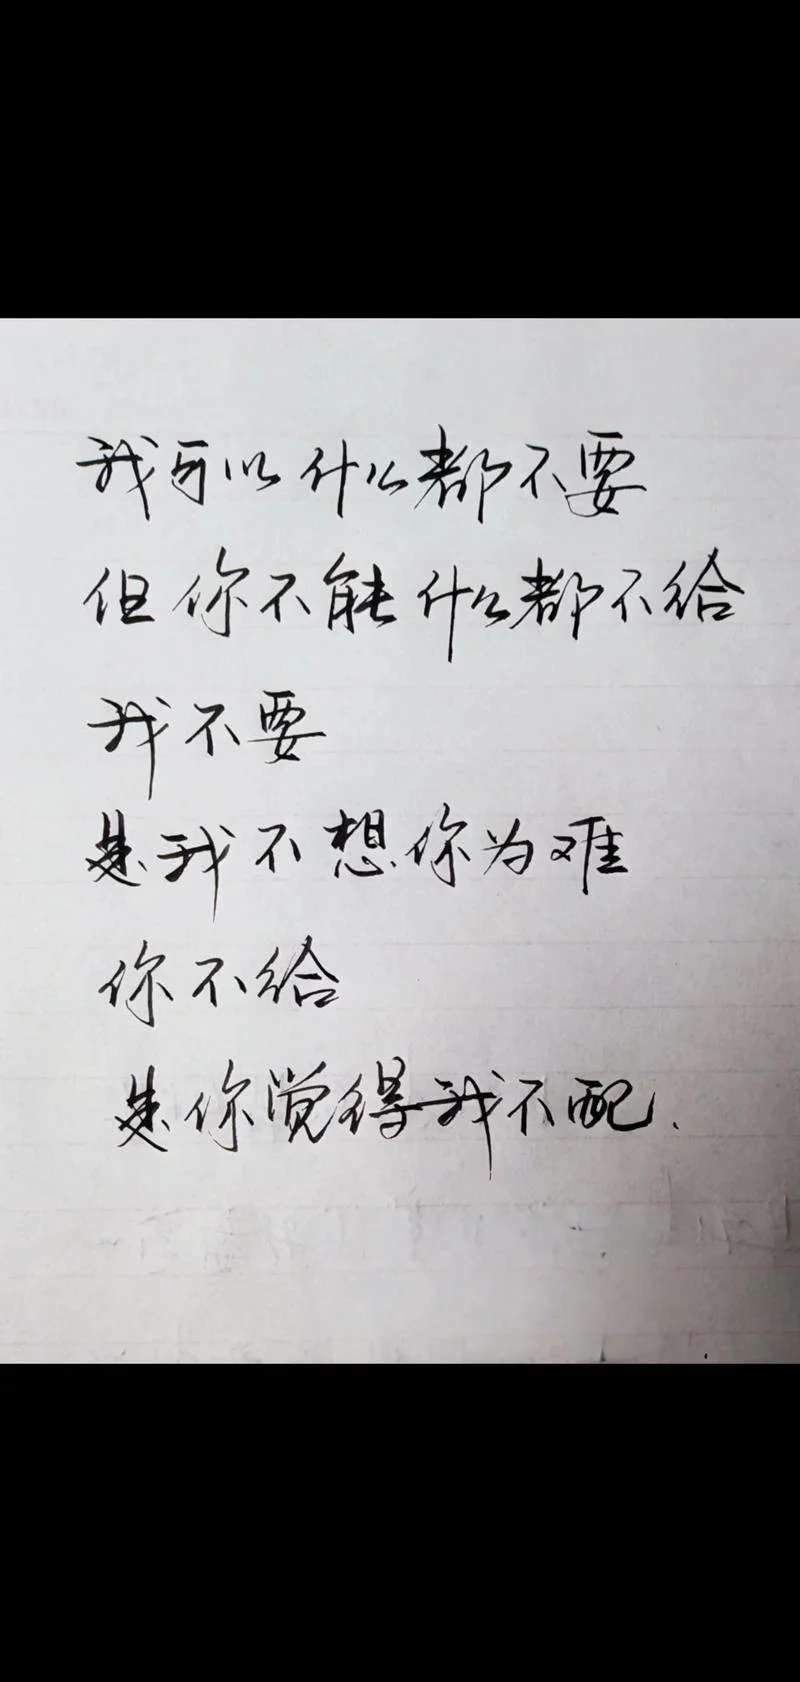 我可以什么都不要
但你不能什么都不给
我不要
是我不想你为难
你不给
是你觉得我不配.